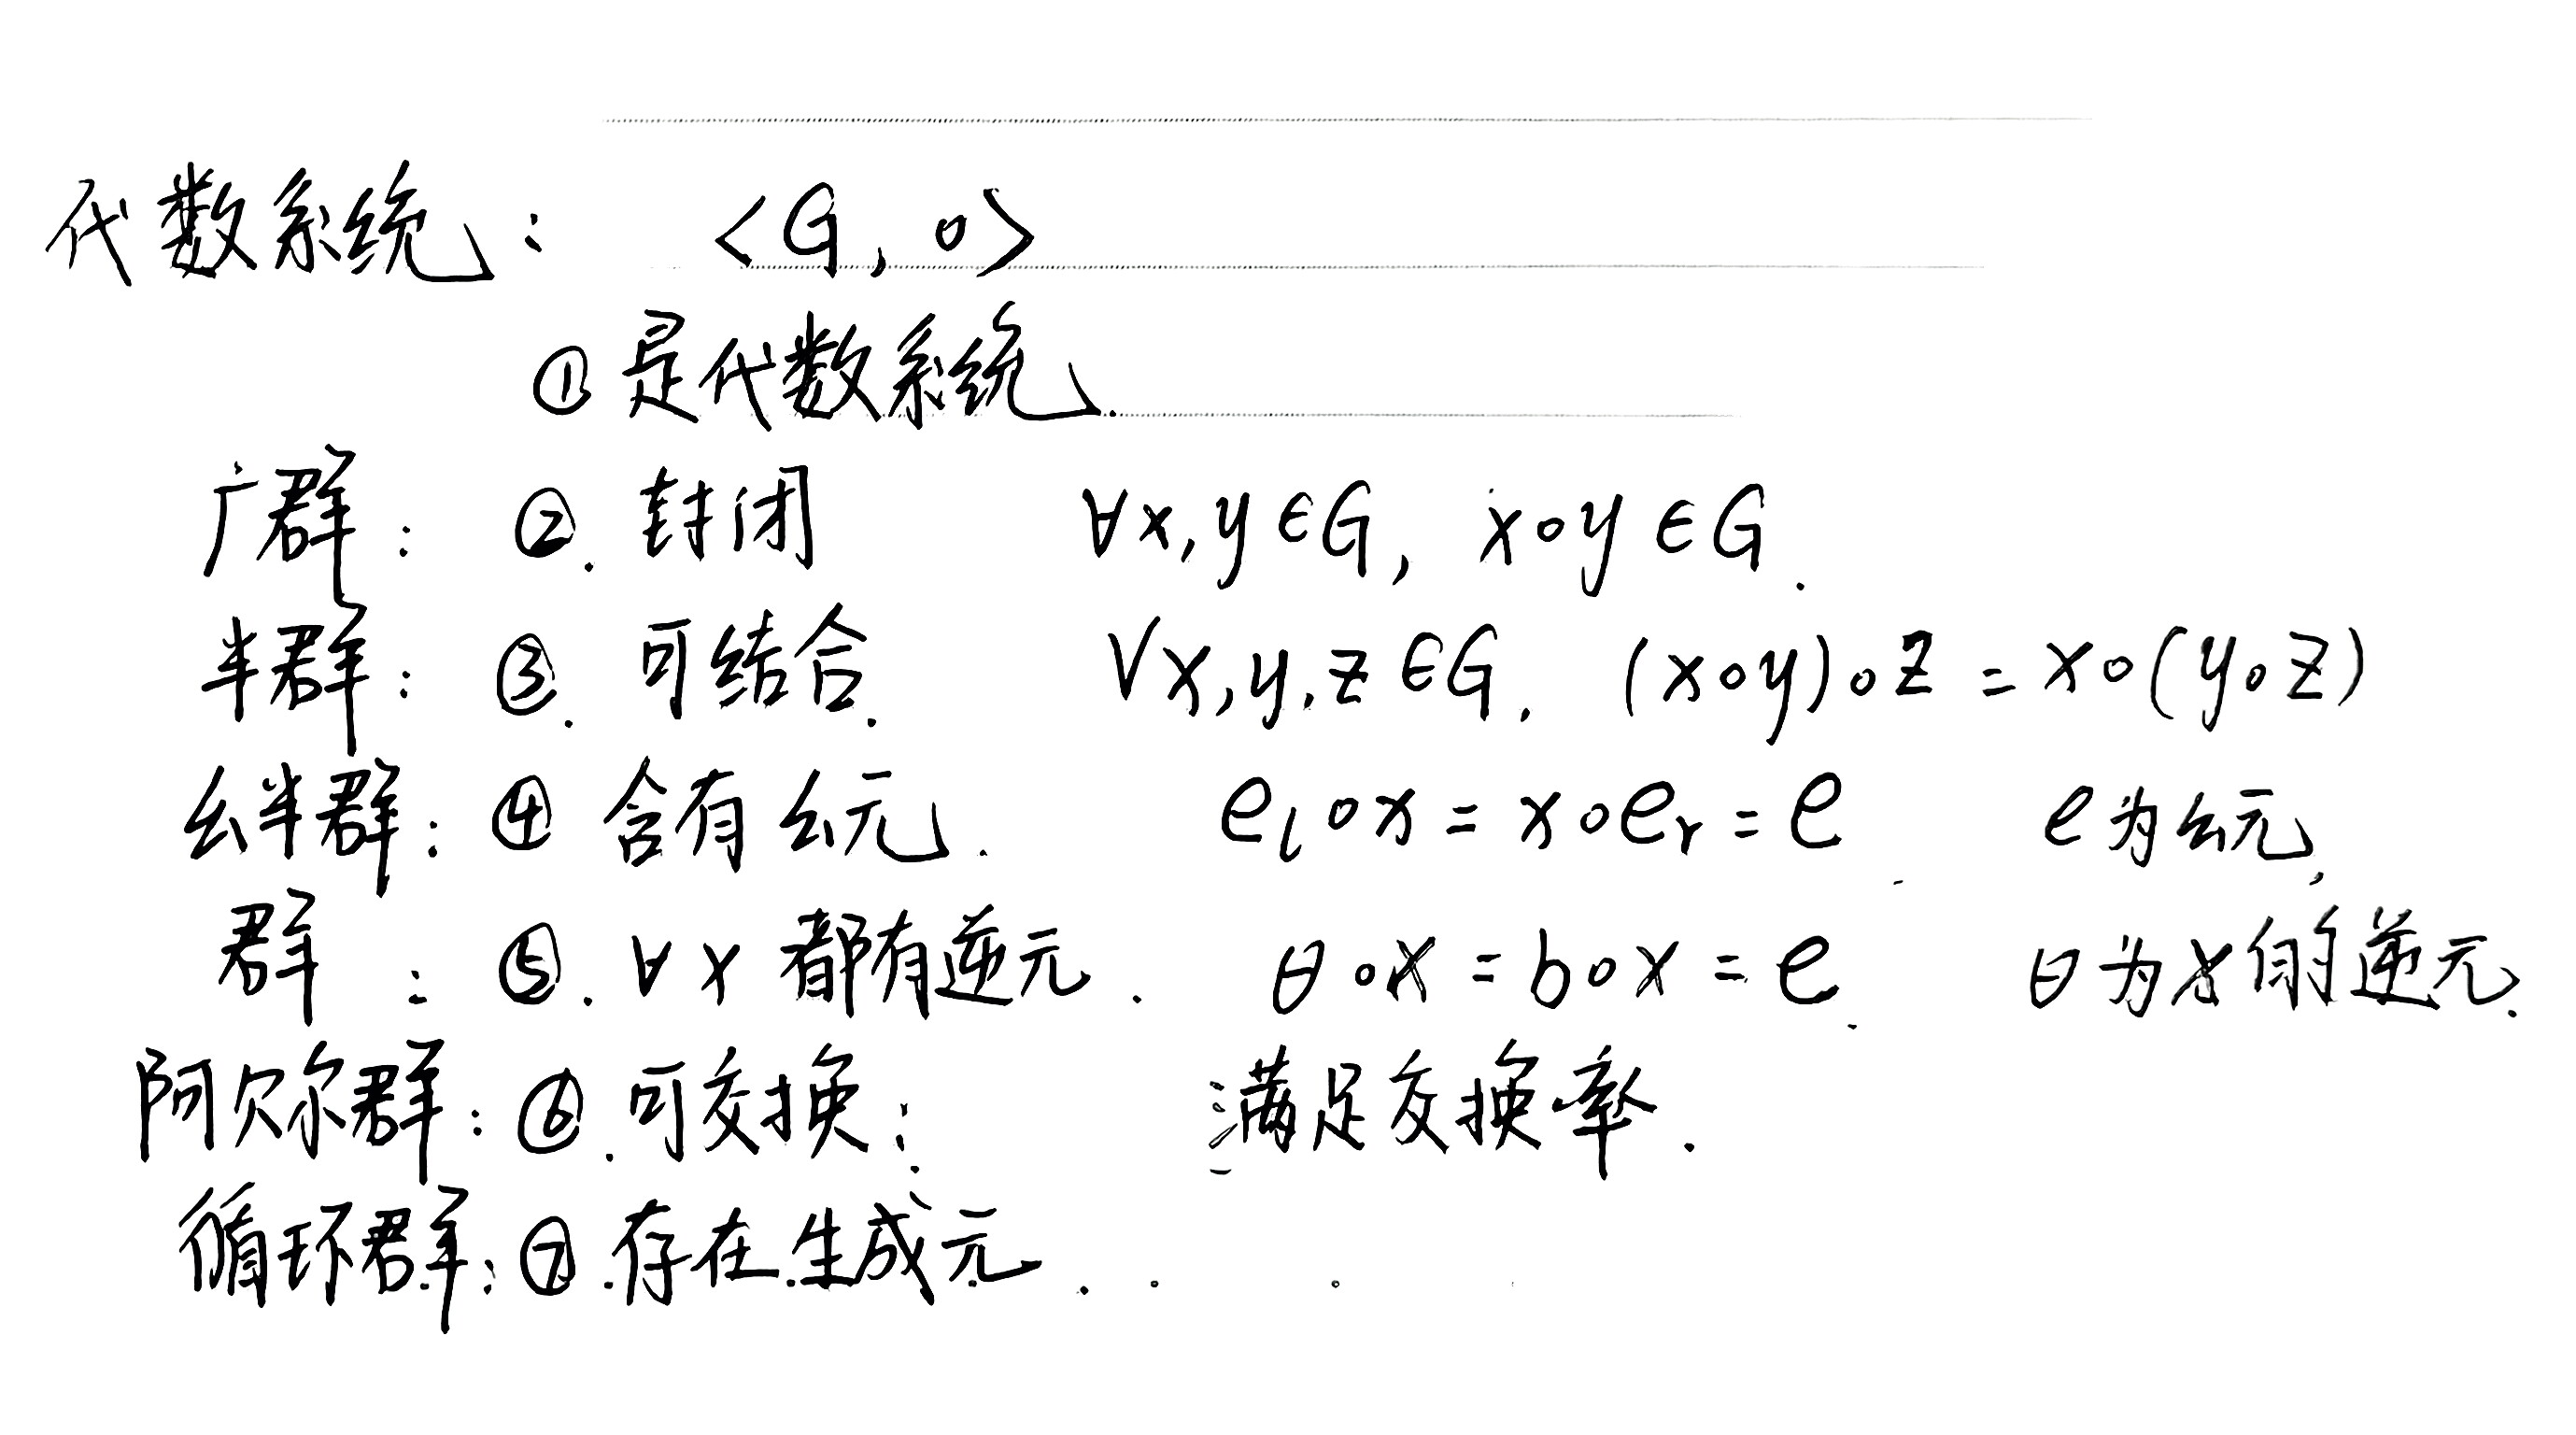 代数系统: <G, o>
① 是代数系统.
广群: ②. 封闭 ∀x,y∈G, x∘y∈G.
半群: ③. 可结合. ∀x,y,z∈G. (x∘y)∘z = x∘(y∘z)
幺半群: ④ 含有幺元. e_l∘x = x∘e_r = e. e为幺元,
群: ⑤. ∀x 都有逆元. θ∘x = b∘x = e. θ为x的逆元.
阿贝尔群: ⑥. 可交换; 满足交换率.
循环群: ⑦. 存在生成元.